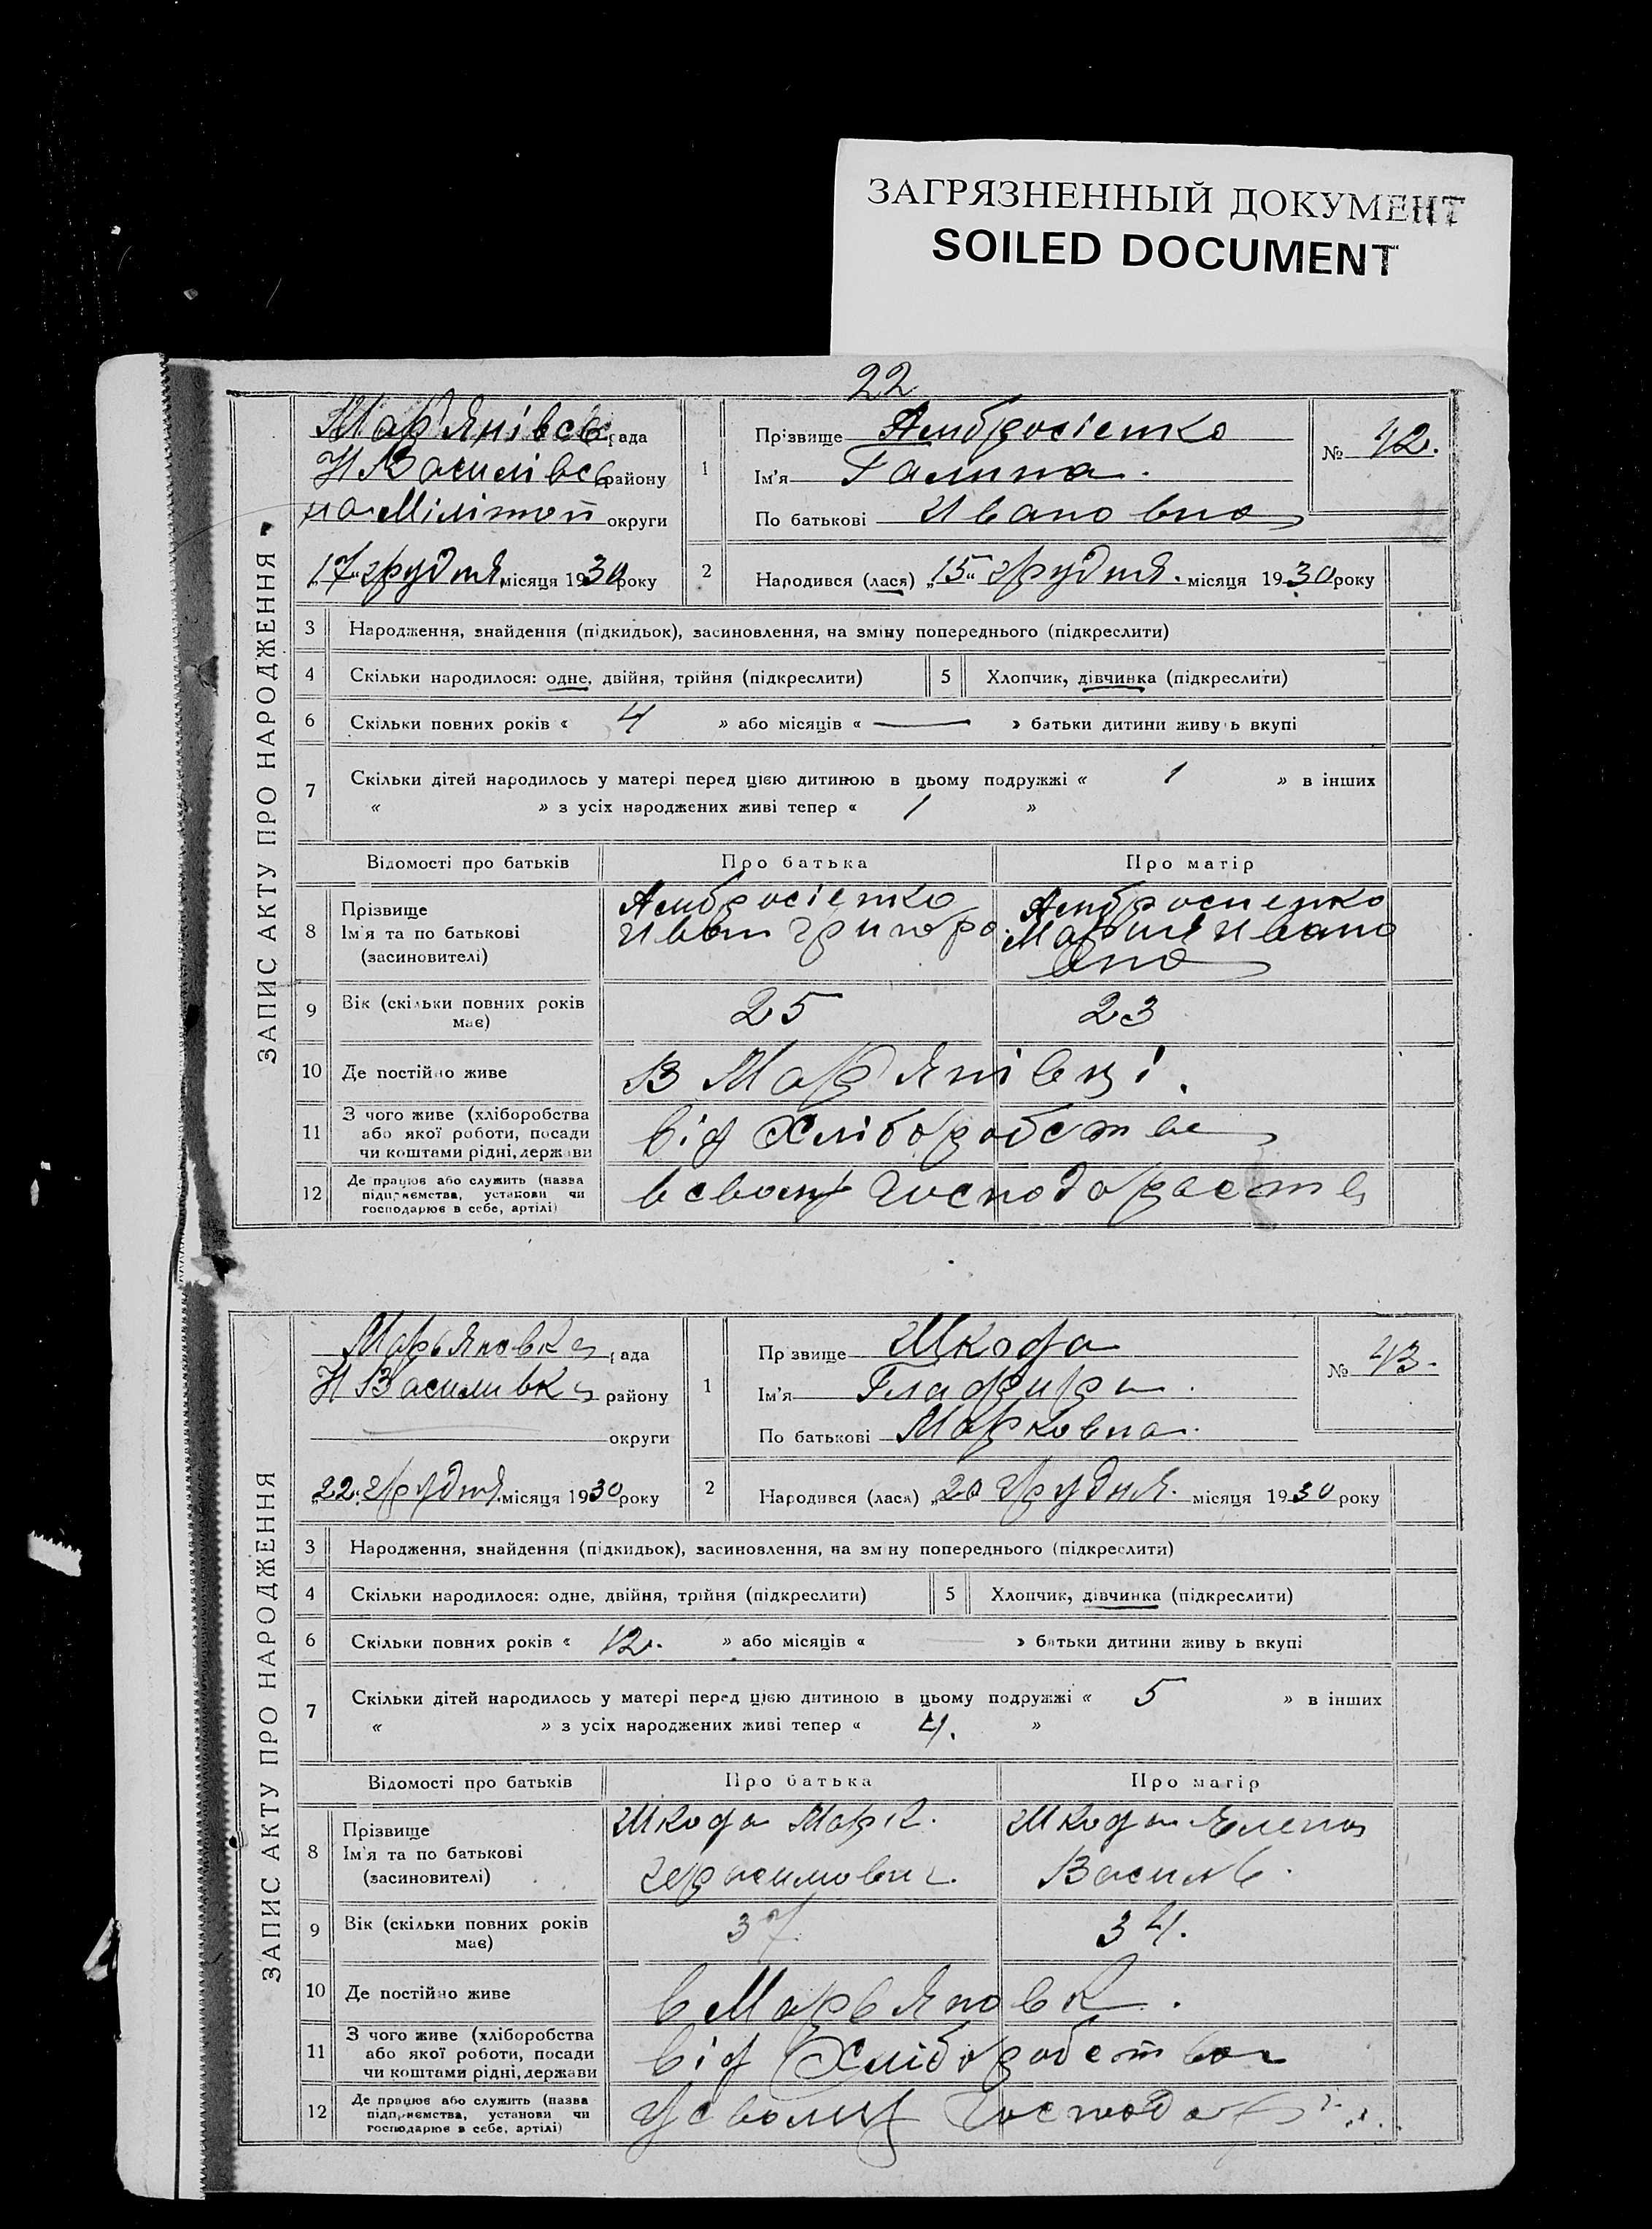 ЗАГРЯЗНЕННЫЙ ДОКУМЕНТ
SOILED DOCUMENT
22
ЗАПИС АКТУ ПРО НАРОДЖЕННЯ
Мар'янівсь рада
Н Василівсь району
округи
"17" грудня місяця 1930 року
1
Прізвище Амбросіенко
Ім'я Галина.
По батькові Ивановна
№ 42.
2
Народився (лася) "15" грудня. місяця 1930 року
3 Народження, знайдення (підкидьок), засиновлення, на зміну попереднього (підкреслити)
4 Скільки народилося: одне, двійня, трійня (підкреслити) 5 Хлопчик, дівчинка (підкреслити)
6 Скільки повних років « 4 » або місяців « — » батьки дитини живуть вкупі
7 Скільки дітей народилось у матері перед цією дитиною в цьому подружжі « 1 » в інших
« » з усіх народжених живі тепер « 1 »
Відомості про батьків Про батька Про матір
8 Прізвище Ім'я та по батькові (засиновителі)
Амбросіенко Иван Григоро.
Амбросиенко Мария Ивановна
9 Вік (скільки повних років має) 25 23
10 Де постійно живе В Мар'янівці.
11 З чого живе (хліборобства або якої роботи, посади чи коштами рідні, держави від Хліборобства
12 Де працює або служить (назва підприємства, установи чи господарює в себе, артілі) в своему Господарстві
ЗАПИС АКТУ ПРО НАРОДЖЕННЯ
Марьяновка рада
Н Василивка району
округи
"22" грудня місяця 1930 року
1
Прізвище Шкода
Ім'я Глафира.
По батькові Марковна.
№ 43.
2
Народився (лася) "20 грудня. місяця 1930 року
3 Народження, знайдення (підкидьок), засиновлення, на зміну попереднього (підкреслити)
4 Скільки народилося: одне, двійня, трійня (підкреслити) 5 Хлопчик, дівчинка (підкреслити)
6 Скільки повних років « 12. » або місяців « — » батьки дитини живуть вкупі
7 Скільки дітей народилось у матері перед цією дитиною в цьому подружжі « 5 » в інших
« » з усіх народжених живі тепер « 4. »
Відомості про батьків Про батька Про матір
8 Прізвище Ім'я та по батькові (засиновителі)
Шкода Марк. Герасимович.
Шкода Елена Василь.
9 Вік (скільки повних років має) 37 34.
10 Де постійно живе в Марьяновк.
11 З чого живе (хліборобства або якої роботи, посади чи коштами рідні, держави від Хліборобства
12 Де працює або служить (назва підприємства, установи чи господарює в себе, артілі) У своему